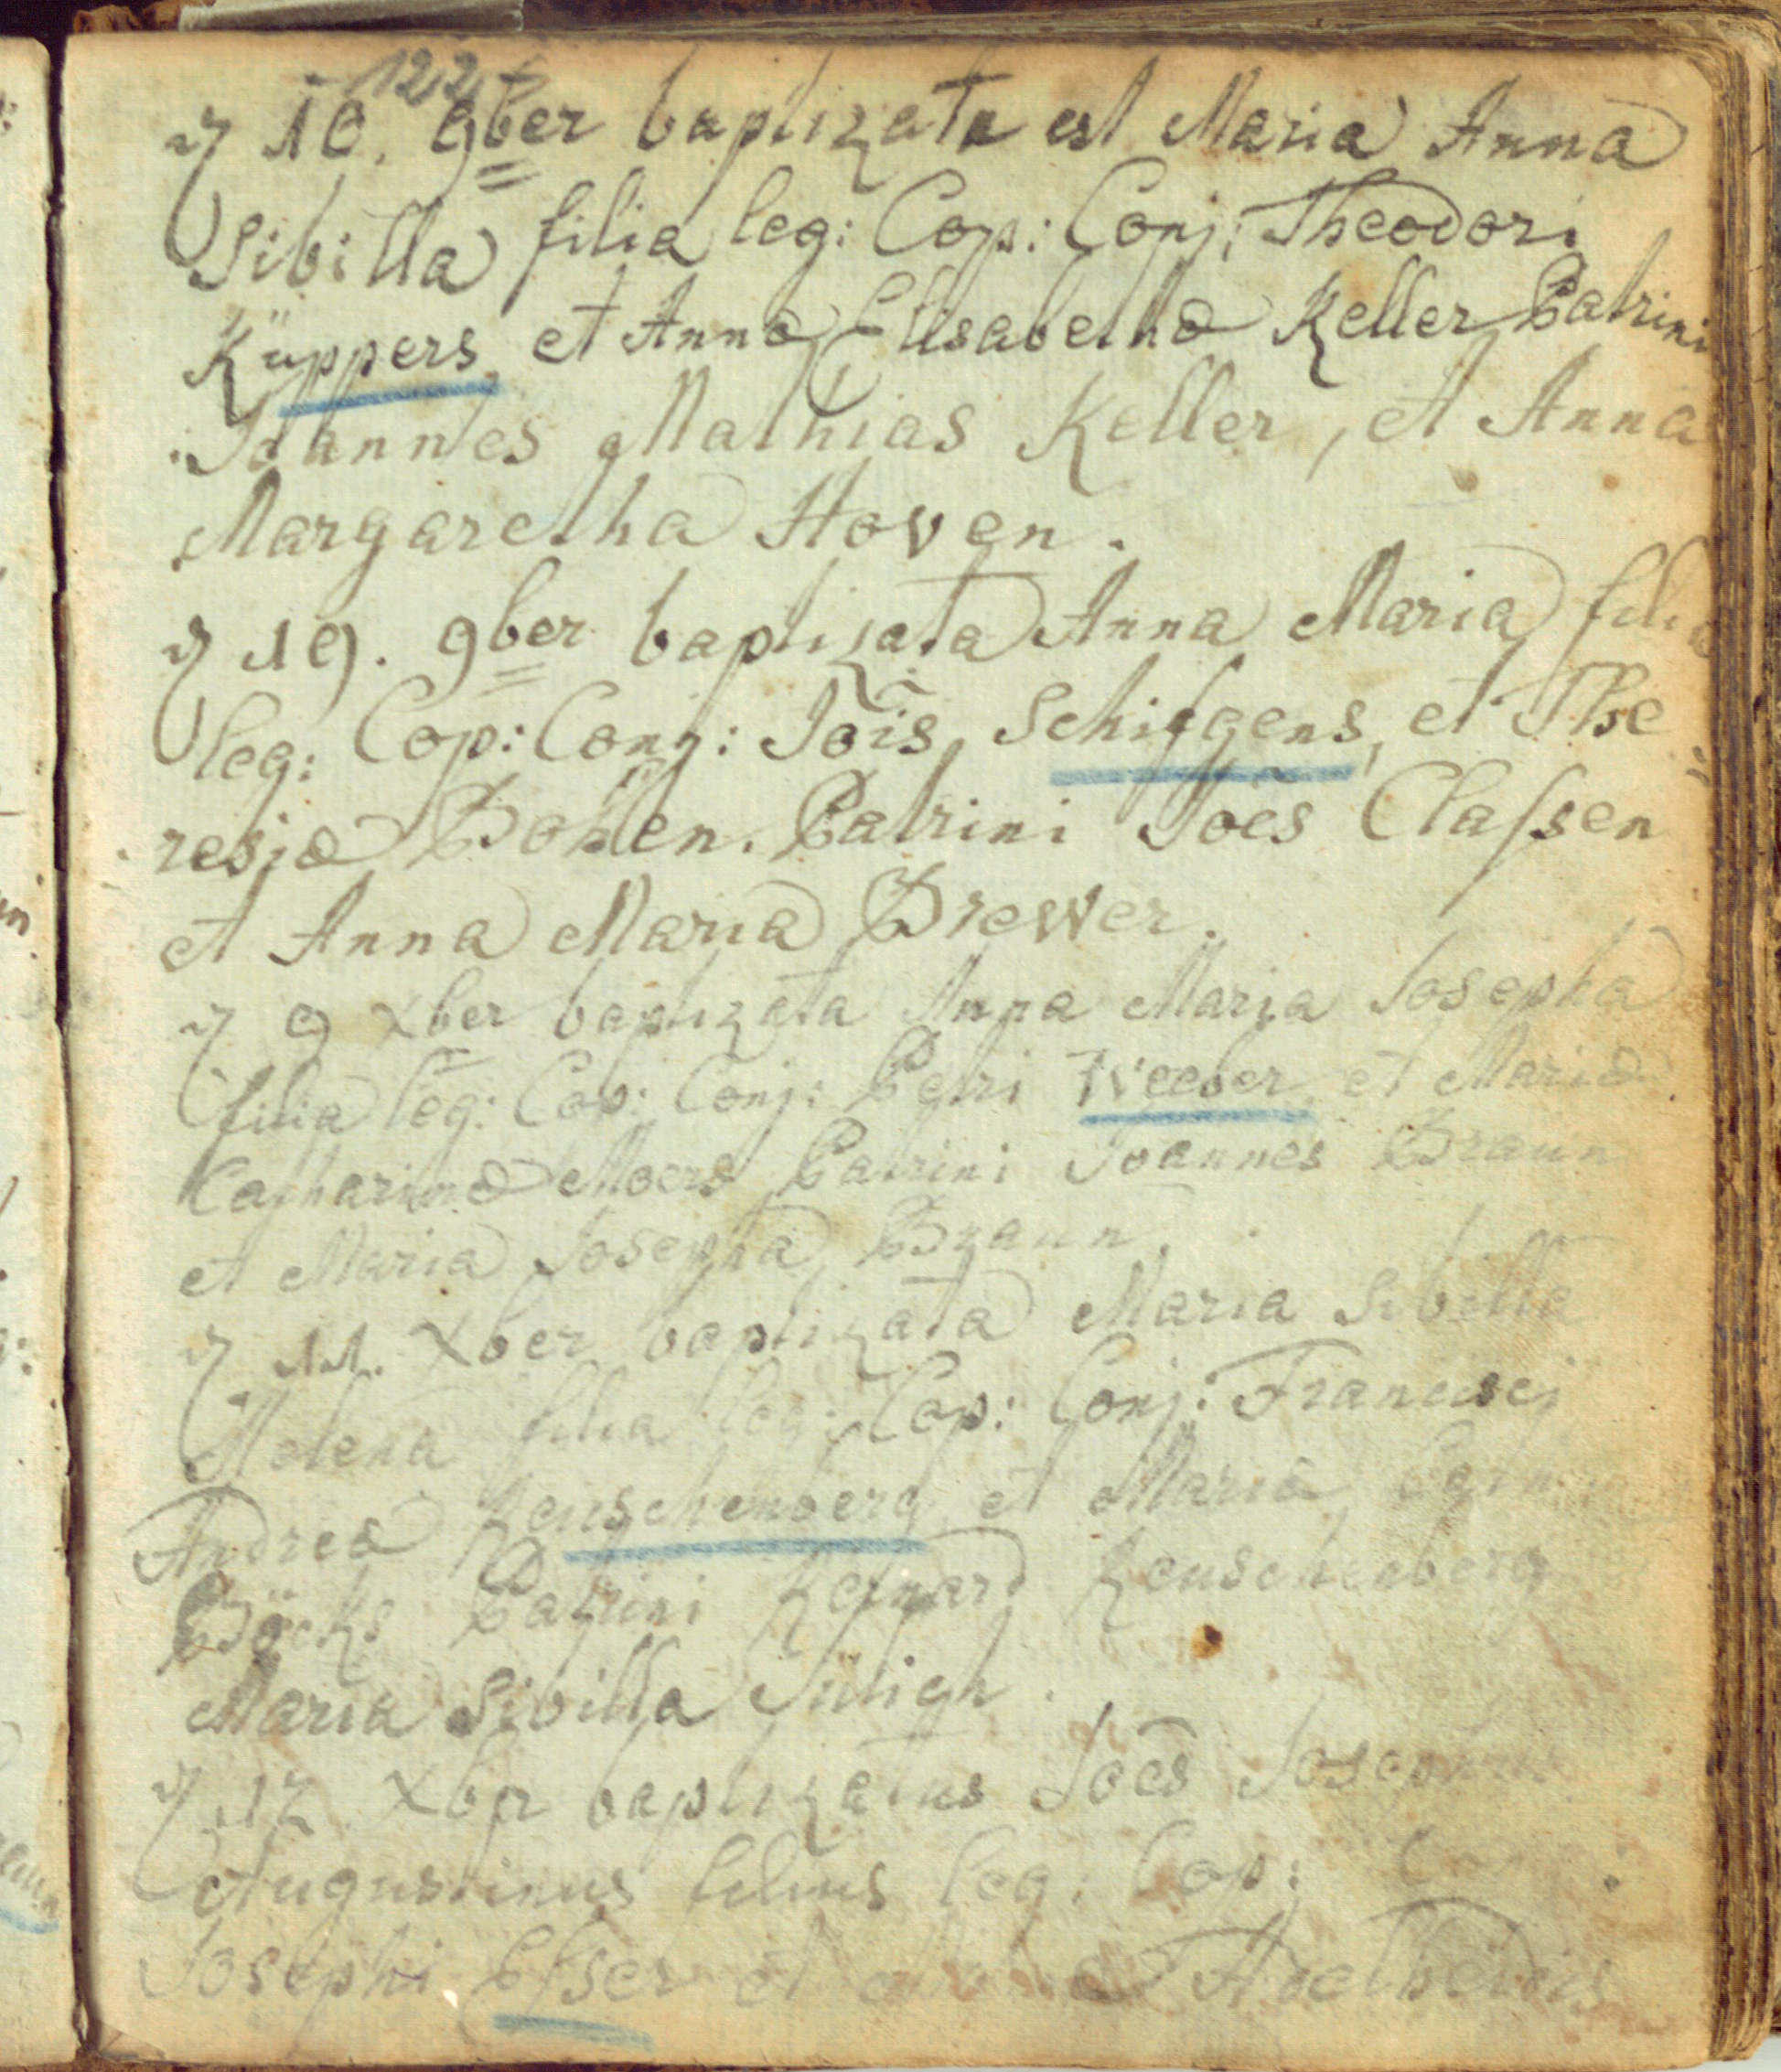 122
ɣ 10. 9ber baptizata est Maria Anna
Sibilla filia leg: Cop: Conj: Theodori
Küppers et Annæ Elisabethæ Keller Patrini
Joannes Mathias Keller, et Anna
Margaretha Hoven.
ɣ 19. 9ber baptizata Anna Maria filia
leg: Cop: Conj: Jois Schifgens, et The=
resiæ Bohlen. Patrini Joes Classen
et Anna Maria Brewer.
ɣ 9 Xber baptizata Anna Maria Josepha
filia leg: Cop: Conj: Petri Weeber et Mariæ
Catharinæ Moers Patrini Joannes Braun
et Maria Josepha Braun.
ɣ 11. Xber baptizata Maria Sibilla
Helena filia leg: Cop: Conj: Francisci
Andreæ Reuschenberg et Maria
Böcks Patrini Reinard Reuschenberg
Maria Sibilla Jüligh.
ɣ 17 Xbr baptizatus Joes Josephus
Augustinus filius leg: Cop:
Josephi Esser et